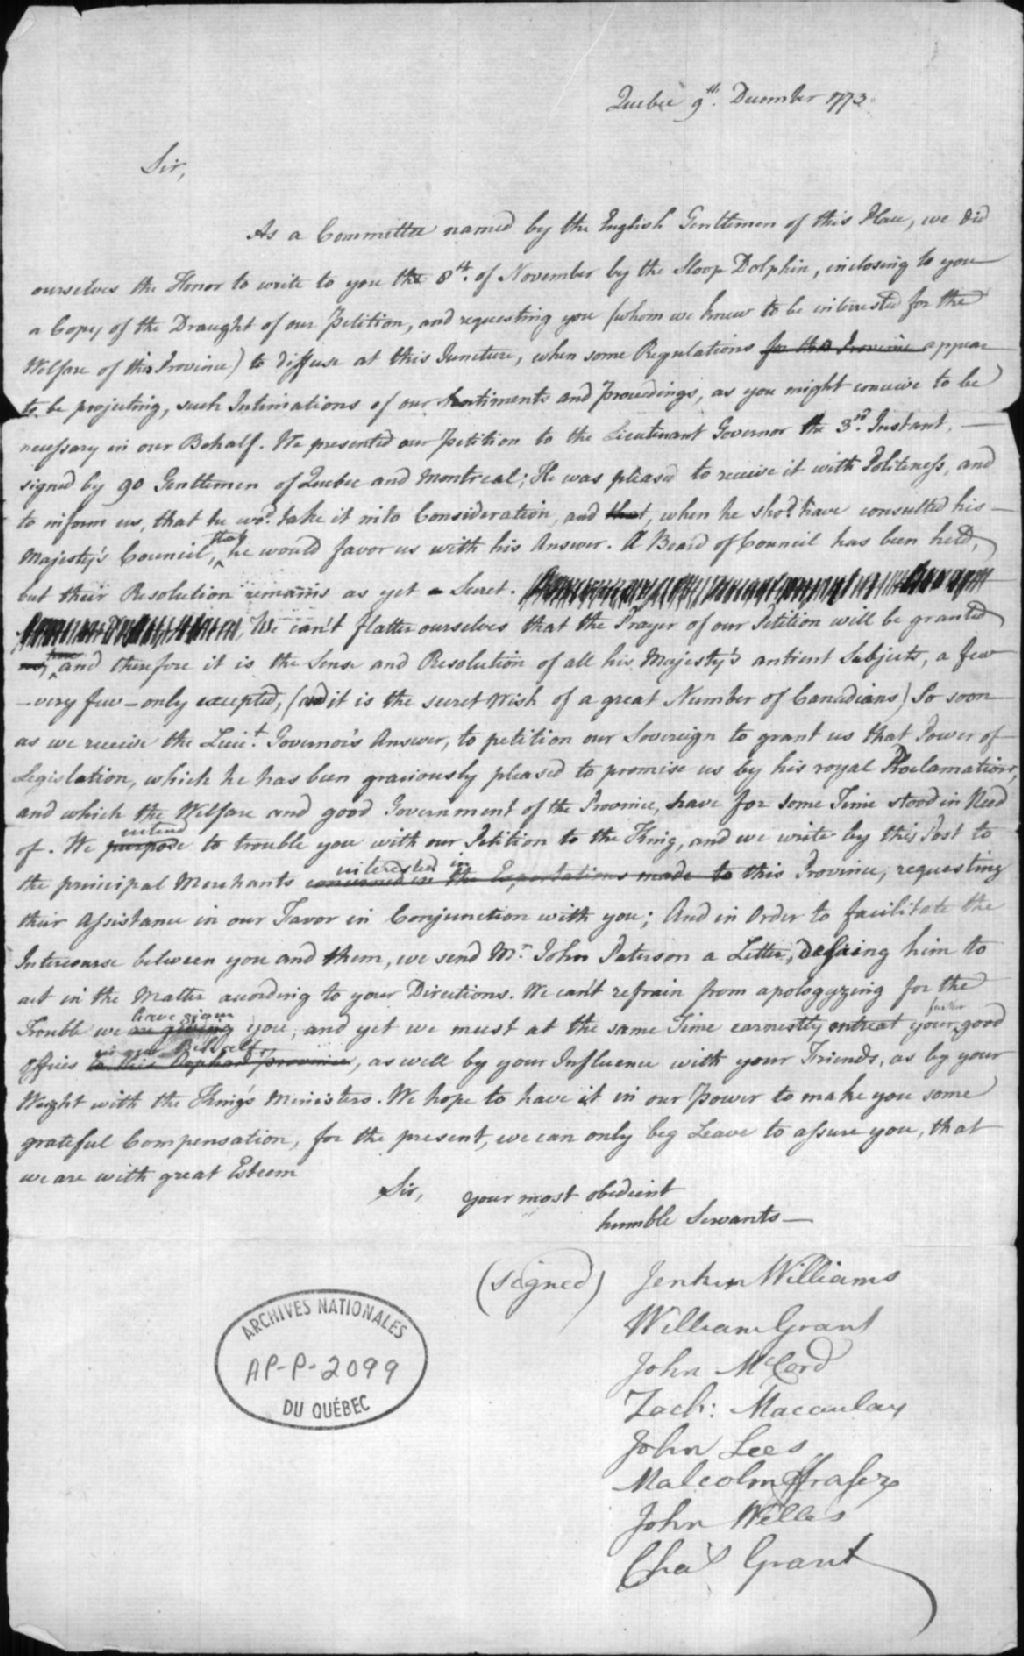 Quebec 9th. December 1773.
Sir,
As a Committee named by the English Gentlemen of this Place, we did
ourselves the Honor to write to you the 8th. of November by the Sloop Dolphin, inclosing to you
a Copy of the Draught of our Petition, and requesting you (whom we knew to be interested for the
Welfare of this Province) to diffuse at this Juncture, when some Regulations for this Province appear
to be projecting, such Intimations of our Sentiments and Proceedings, as you might conceive to be
necessary in our Behalf. We presented our Petition to the Lieutenant Governor the 3rd. Instant,
signed by 90 Gentlemen of Quebec and Montreal; He was pleased to receive it with Politeness, and
to inform us, that he wod. take it into Consideration, and that, when he shod. have consulted his
that
Majesty's Council, he would favor us with his Answer. A Board of Council has been held,
but their Resolution remains as yet a Secret.
We can't flatter ourselves that the Prayer of our Petition will be granted
and therefore it is the Sense and Resolution of all his Majesty's antient Subjects, a few
- very few - only excepted, (and it is the secret Wish of a great Number of Canadians) So soon
as we receive the Lieut. Governor's Answer, to petition our Sovereign to grant us that Power of
Legislation, which he has been graciously pleased to promise us by his royal Proclamation,
and which the Welfare and good Government of the Province, have for some Time stood in Need
intend
of. We purpose to trouble you with our Petition to the King, and we write by this Post to
interested in
the principal Merchants concerned in the Exportations made to this Province, requesting
their Assistance in our Favor in Conjunction with you; And in Order to facilitate the
Intercourse between you and them, we send Mr. John Paterson a Letter, desiring him to
act in the Matter acording to your Directions. We can't refrain from apologyzing for the
have given
Trouble we are giving you, and yet we must at the same Time earnestly entreat your good
in our Behalf
offices to this Orphan province, as well by your Influence with your Friends, as by your
Weight with the King's Ministers. We hope to have it in our Power to make you some
grateful Compensation, for the present, we can only beg Leave to assure you, that
we are with great Esteem
Sir, your most obedient
humble Servants
(signed) Jenkin Williams
William Grant
John McCord
Zach: Macaulay
John Lees
Malcolm ffraser
John Welles
Chas Grant
ARCHIVES NATIONALES
AP-P-2099
DU QUÉBEC